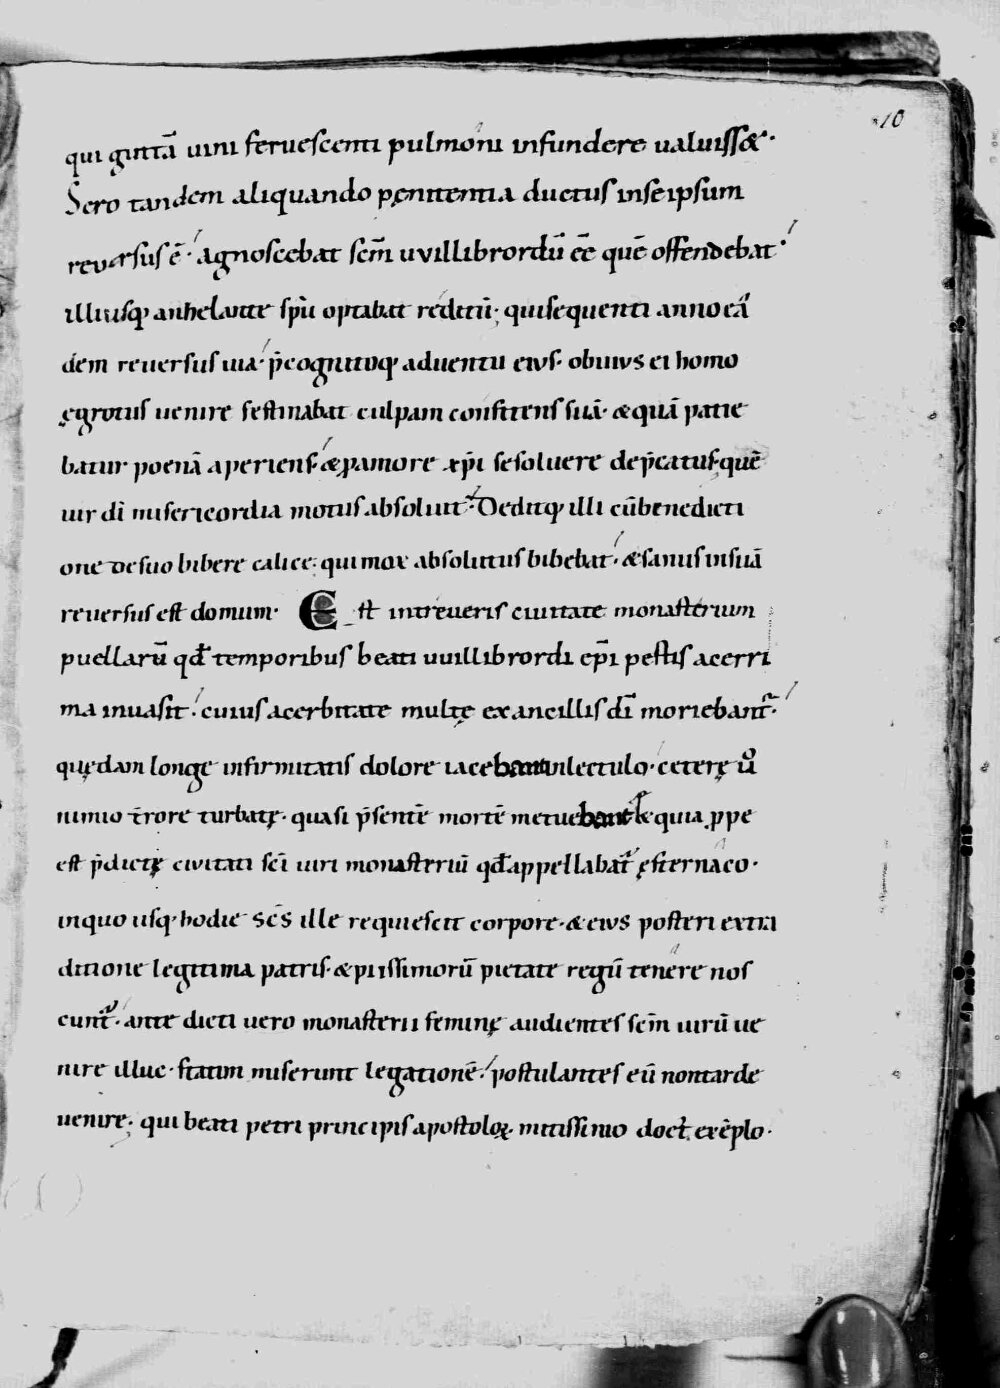 10
qui guttā uini feruescenti pulmoni infundere ualuiss&.
Sero tandem aliquando pęnitentia ductus inseipsum
reuersus ē. agnoscebat scm̄ uvillibrordū ēē quē offendebat.
illiusq; anhelante spū optabat reditū; qui sequenti anno eā
dem reuersus uia. p̄cognitoq; aduentu eius. obuius ei homo
ęgrotus uenire festinabat culpam confitens suā. & quā patie
batur poenā aperiens. & ꝑ amore xp̄i se soluere dep̄catus. quē
uir dī misericordia motus absoluit. Deditq; illi cū benedicti
one de suo bibere calice. qui mox absolutus bibebat. & sanus in suā
reuersus est domum. Est in treueris ciuitate monasterium
puellarū qđ temporibus beati uuillibrordi ep̄i pestis acerri
ma inuasit. cuius acerbitate multę ex ancillis dī moriebant̄.
quędam longe infirmitatis dolore iacebant in lectulo. ceterę ū
nimio t̄rore turbatę. quasi p̄sentē mortē metuebant quia ꝓpe
est p̄dictę ciuitati sc̄i uiri monasteriū qđ appellabat̄ ęfternaco.
in quo usq; hodie sc̄s ille requiescit corpore. & eius posteri ex tra
ditione legitima patris. & piissimorū pietate regū tenere nos
cunt̄. ante dicti uero monasterii feminę audientes scm̄ uirū ue
nire illuc. statim miserunt legationē. postulantes eū non tarde
uenire. qui beati petri principis apostoloꝝ. mitissimo doct̄ exēplo.